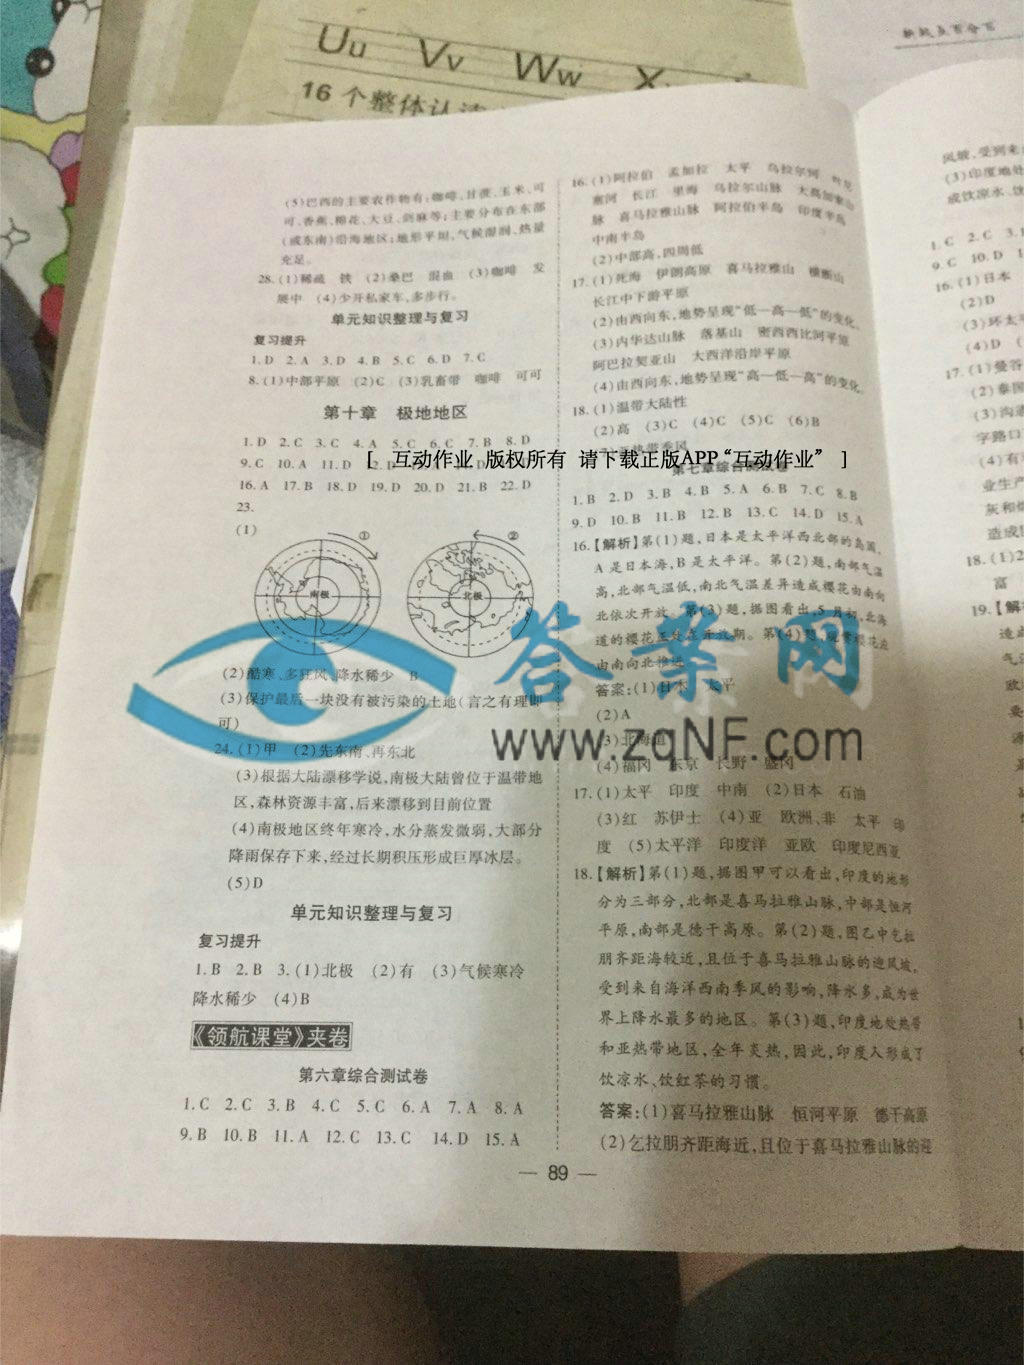 Uu Vv Ww X
16个整体认读
(5)巴西的主要农作物有:咖啡、甘蔗、玉米、可
可、香蕉、棉花、大豆、剑麻等;主要分布在东部
(或东南)沿海地区;地形平坦,气候湿润,热量
充足。
28.(1)稀疏 铁 (2)桑巴 混血 (3)咖啡 发
展中 (4)少开私家车,多步行。
单元知识整理与复习
复习提升
1.D 2.A 3.D 4.B 5.C 6.D 7.C
8.(1)中部平原 (2)C (3)乳畜带 咖啡 可可
第十章 极地地区
1.D 2.C 3.C 4.A 5.C 6.C 7.B 8.D
9.C 10.A 11.D
16.A 17.B 18.D 19.D 20.D 21.B 22.D
23.
(1)
① ②
南极 北极
(2)酷寒、多狂风、降水稀少 B
(3)保护最后一块没有被污染的土地(言之有理即
可)
24.(1)甲 (2)先东南、再东北
(3)根据大陆漂移学说,南极大陆曾位于温带地
区,森林资源丰富,后来漂移到目前位置
(4)南极地区终年寒冷,水分蒸发微弱,大部分
降雨保存下来,经过长期积压形成巨厚冰层。
(5)D
单元知识整理与复习
复习提升
1.B 2.B 3.(1)北极 (2)有 (3)气候寒冷
降水稀少 (4)B
《领航课堂》夹卷
第六章综合测试卷
1.C 2.C 3.B 4.C 5.C 6.A 7.A 8.A
9.B 10.B 11.A 12.C 13.C 14.D 15.A
16.(1)阿拉伯 孟加拉 太平 乌拉尔河 叶尼
塞河 长江 里海 乌拉尔山脉 大高加索山
脉 喜马拉雅山脉 阿拉伯半岛 印度半岛
中南半岛
(2)中部高,四周低
17.(1)死海 伊朗高原 喜马拉雅山 横断山
长江中下游平原
(2)由西向东,地势呈现“低—高—低”的变化。
(3)内华达山脉 落基山 密西西比河平原
阿巴拉契亚山 大西洋沿岸平原
(4)由西向东,地势呈现“高—低—高”的变化。
18.(1)温带大陆性
(2)高 (3)C (4)C (5)C (6)B
亚热带季风
[ 互动作业 版权所有 请下载正版APP“互动作业” ]
第七章综合测试卷
1.B 2.D 3.B 4.B 5.A 6.B 7.C 8.B
9.D 10.B 11.B 12.B 13.C 14.D 15.A
16.【解析】第(1)题,日本是太平洋西北部的岛国,
A是日本海,B是太平洋。第(2)题,南部气温
高,北部气温低,南北气温差异造成樱花由南向
北依次开放。第(3)题,据图看出,5月初,北海
道的樱花正处在开放期。第(4)题,观赏樱花应
由南向北推进。
答案:(1)日本 太平
(2)A
(3)北海道
(4)福冈 东京 长野 盛冈
17.(1)太平 印度 中南 (2)日本 石油
(3)红 苏伊士 (4)亚 欧洲、非 太平 印
度 (5)太平洋 印度洋 亚欧 印度尼西亚
18.【解析】第(1)题,据图甲可以看出,印度的地形
分为三部分,北部是喜马拉雅山脉,中部是恒河
平原,南部是德干高原。第(2)题,图乙中乞拉
朋齐距海较近,且位于喜马拉雅山脉的迎风坡,
受到来自海洋西南季风的影响,降水多,成为世
界上降水最多的地区。第(3)题,印度地处热带
和亚热带地区,全年炎热,因此,印度人形成了
饮凉水、饮红茶的习惯。
答案:(1)喜马拉雅山脉 恒河平原 德干高原
(2)乞拉朋齐距海近,且位于喜马拉雅山脉的迎
— 89 —
答案网
www.zqNF.com
风坡,受到来
(3)印度地处
成饮凉水、饮
1.C 2.C 3.
9.C 10.D 1
16.(1)日本
(2)D
(3)环太
(4)D
17.(1)曼谷
(2)泰国
(3)沟
字路口
(4)有
业生产
灰和
造成
18.(1)2
富
19.【解
造成
气
欧
要
源